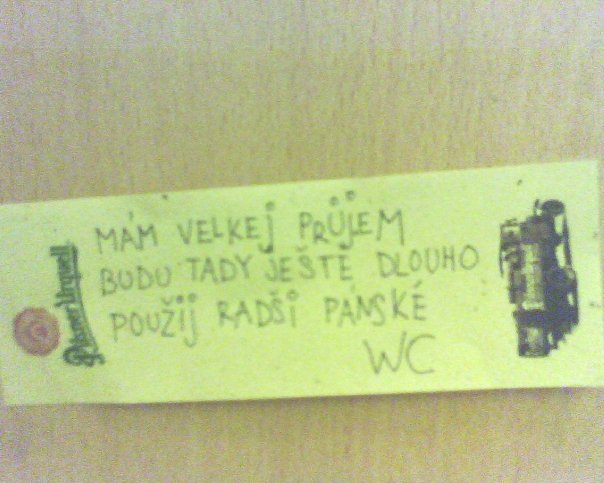 Pilsner Urquell
MÁM VELKEJ PRŮJEM
BUDU TADY JEŠTĚ DLOUHO
POUŽIJ RADŠI PÁNSKÉ
WC